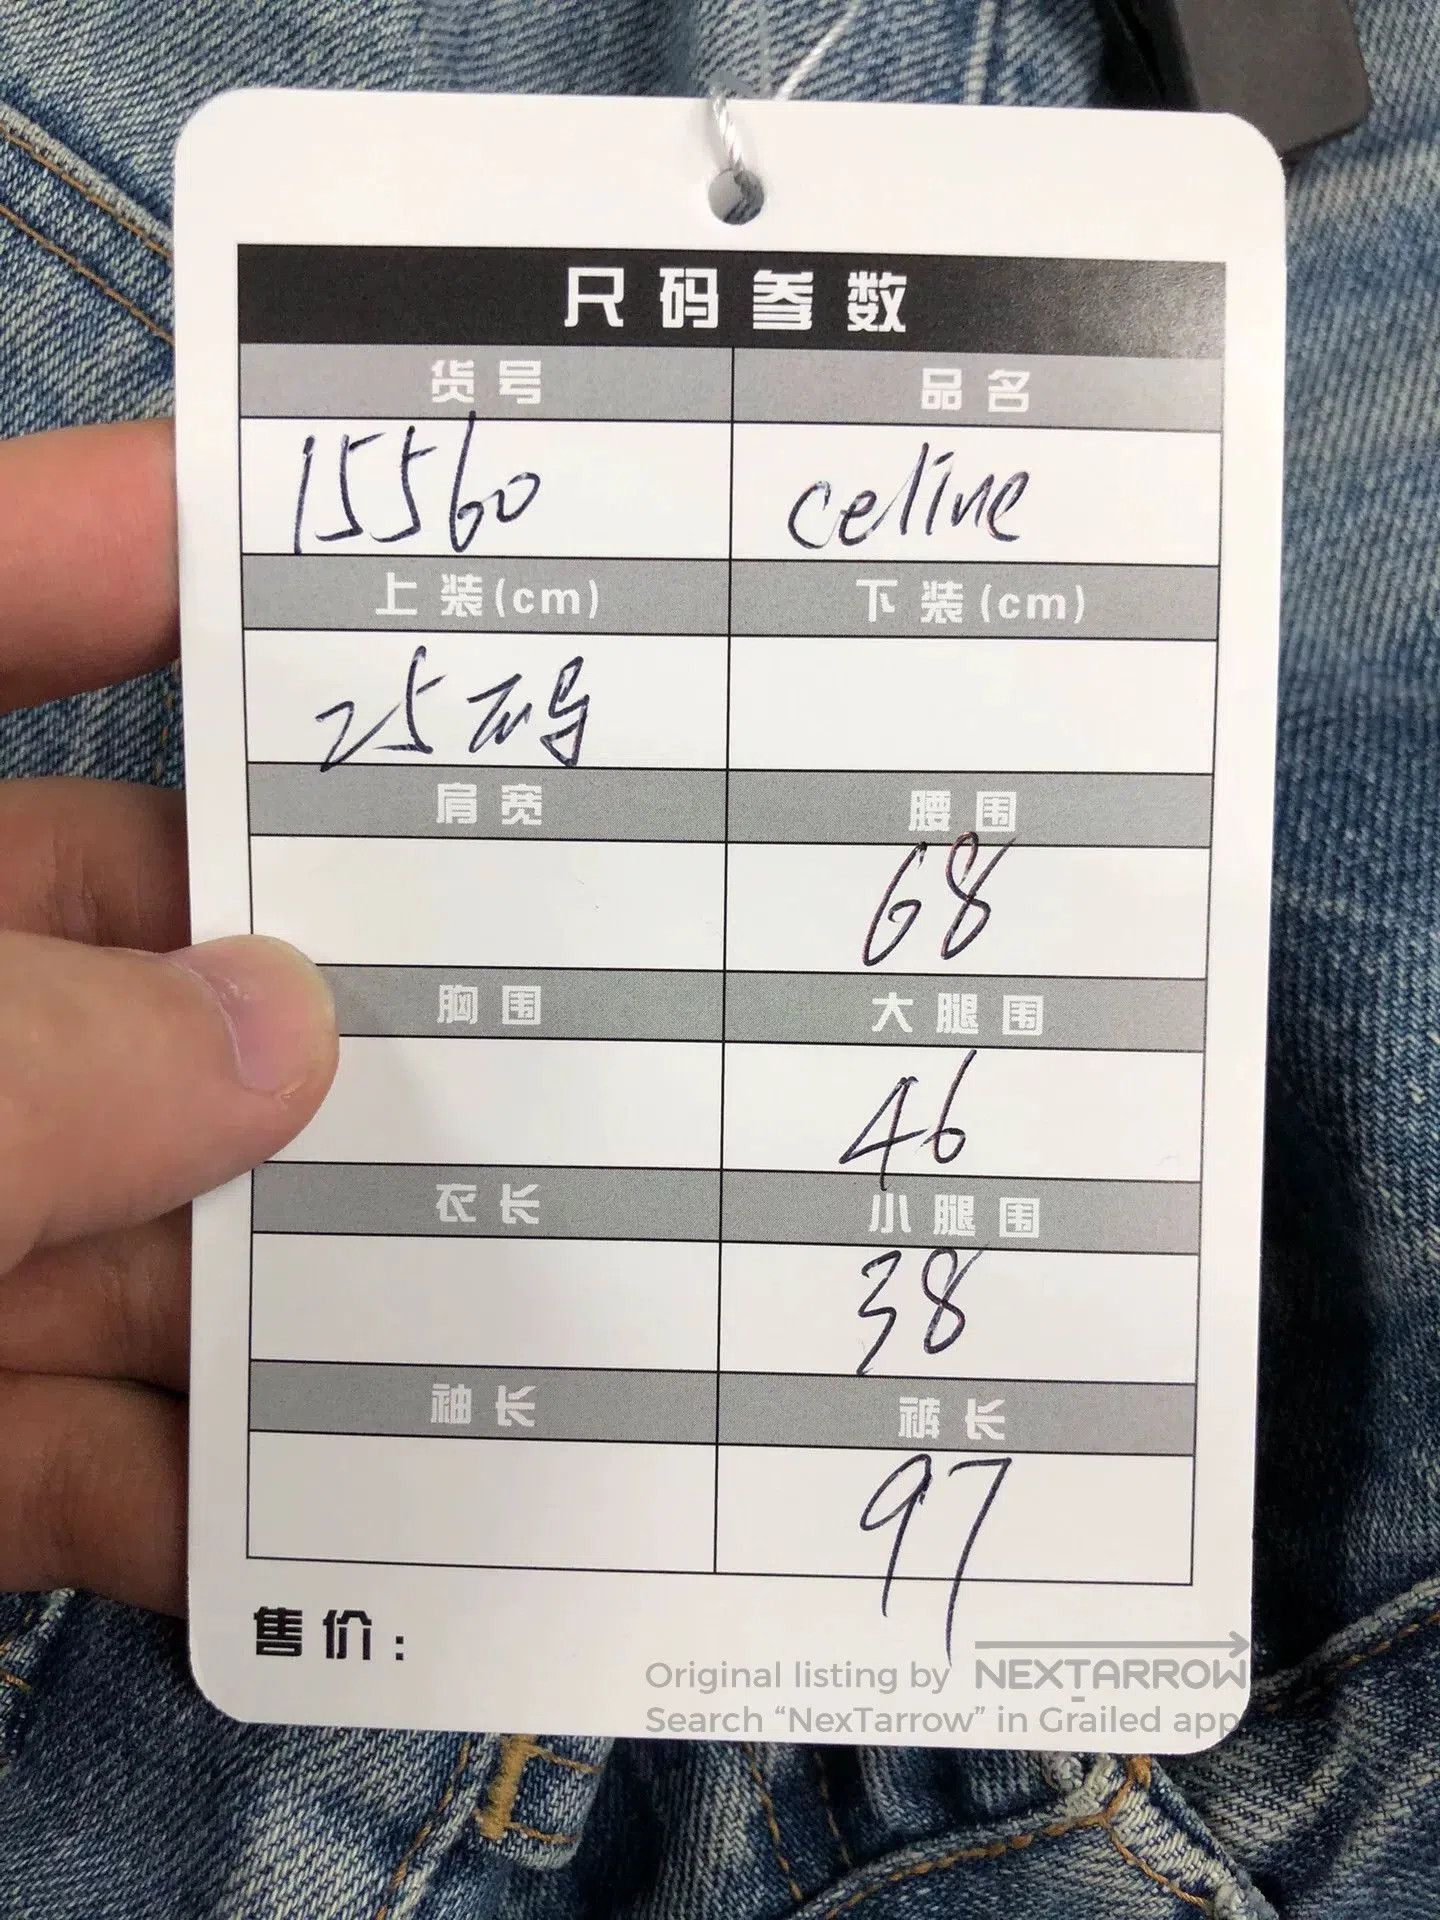 尺码参数
货号 品名
15560 celine
上装(cm) 下装(cm)
25码
肩宽 腰围
68
胸围 大腿围
46
衣长 小腿围
38
袖长 裤长
97
售价:
Original listing by NEXTARROW
Search “NexTarrow” in Grailed app